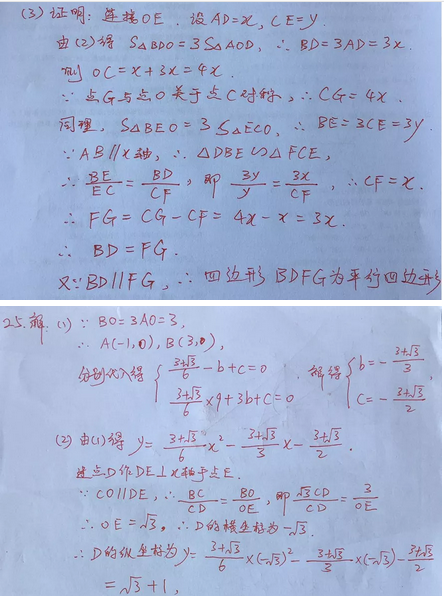 (3) 证明: 连接OE. 设AD=x, CE=y.
由(2)得 S△BDO=3S△AOD, ∴BD=3AD=3x.
则OC=x+3x=4x.
∵点G与点O关于点C对称, ∴CG=4x.
同理, S△BEO=3S△ECO, ∴BE=3CE=3y.
∵AB∥x轴, ∴△DBE∽△FCE,
∴BE/EC=BD/CF, 即 3y/y=3x/CF, ∴CF=x.
∴FG=CG-CF=4x-x=3x.
∴BD=FG.
又∵BD∥FG, ∴四边形BDFG为平行四边形
25.解: (1) ∵BO=3AO=3,
∴A(-1,0), B(3,0),
分别代入得 { (3+√3)/6-b+c=0 (3+√3)/6×9+3b+c=0 解得 { b=-(3+√3)/3 c=-(3+√3)/2
(2) 由(1)得 y=(3+√3)/6x²-(3+√3)/3x-(3+√3)/2.
过点D作DE⊥x轴于点E.
∵CO∥DE, ∴BC/CD=BO/OE, 即 √3CD/CD=3/OE
∴OE=√3, ∴D的横坐标为-√3.
∴D的纵坐标为y=(3+√3)/6×(-√3)²-(3+√3)/3×(-√3)-(3+√3)/2
=√3+1,